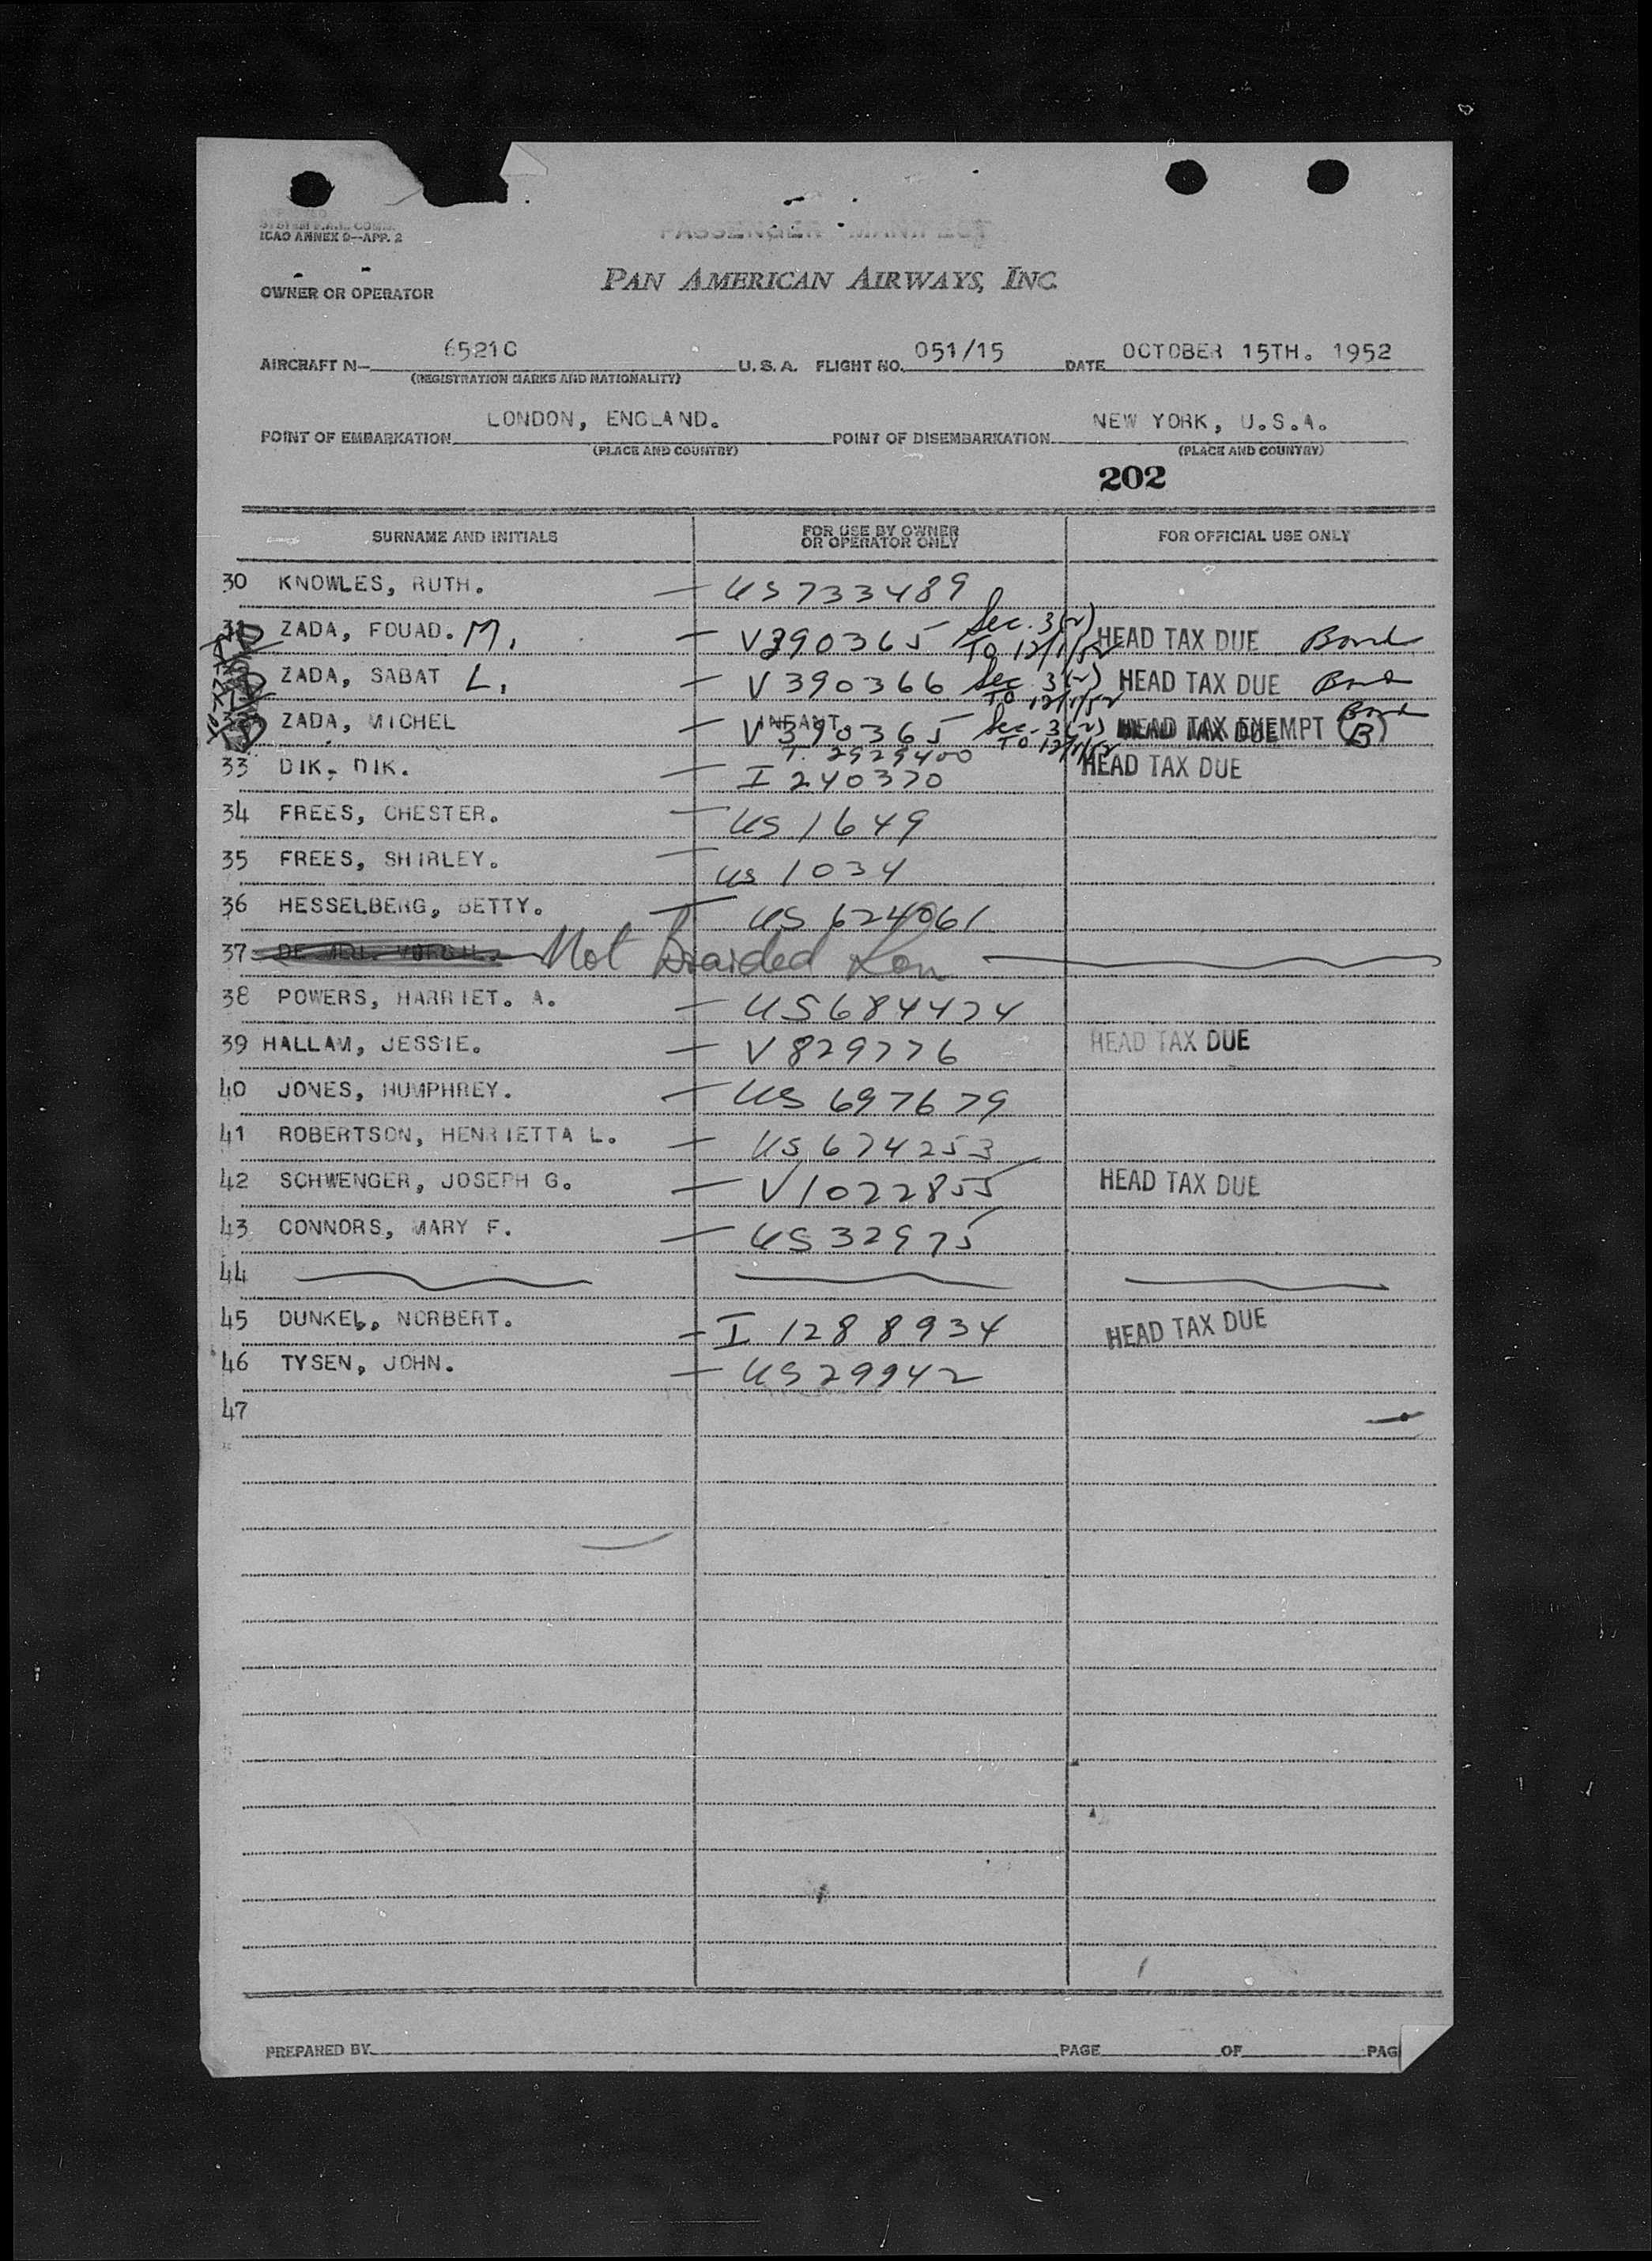 ICAO ANNEX 9—APP. 2
PASSENGER MANIFEST
OWNER OR OPERATOR
PAN AMERICAN AIRWAYS, INC.
AIRCRAFT N— 6521C U. S. A. FLIGHT NO. 051/15 DATE OCTOBER 15TH. 1952
(REGISTRATION MARKS AND NATIONALITY)
POINT OF EMBARKATION LONDON, ENGLAND. POINT OF DISEMBARKATION NEW YORK, U.S.A.
(PLACE AND COUNTRY) (PLACE AND COUNTRY)
202
SURNAME AND INITIALS FOR USE BY OWNER OR OPERATOR ONLY FOR OFFICIAL USE ONLY
30 KNOWLES, RUTH. — US733489
31 ZADA, FOUAD. M. — V390365 Sec. 3(2) TO 12/1/52 HEAD TAX DUE Bond
ZADA, SABAT L. — V390366 Sec. 3(2) TO 12/1/52 HEAD TAX DUE Bond
ZADA, MICHEL — INFANT V390365 Sec. 3(2) TO 12/1/52 HEAD TAX EXEMPT Bond (B)
T. 2929400
33 DIK, DIK. — I 240370 HEAD TAX DUE
34 FREES, CHESTER. — US 1649
35 FREES, SHIRLEY. — US 1034
36 HESSELBERG, BETTY. — US 624061
37 Not boarded Lon
38 POWERS, HARRIET. A. — US684424
39 HALLAM, JESSIE. — V829776 HEAD TAX DUE
40 JONES, HUMPHREY. — US 697679
41 ROBERTSON, HENRIETTA L. — US 674253
42 SCHWENGER, JOSEPH G. — V1022855 HEAD TAX DUE
43 CONNORS, MARY F. — US32975
44
45 DUNKEL, NORBERT. — I 1288934 HEAD TAX DUE
46 TYSEN, JOHN. — US29942
47
PREPARED BY PAGE OF PAG